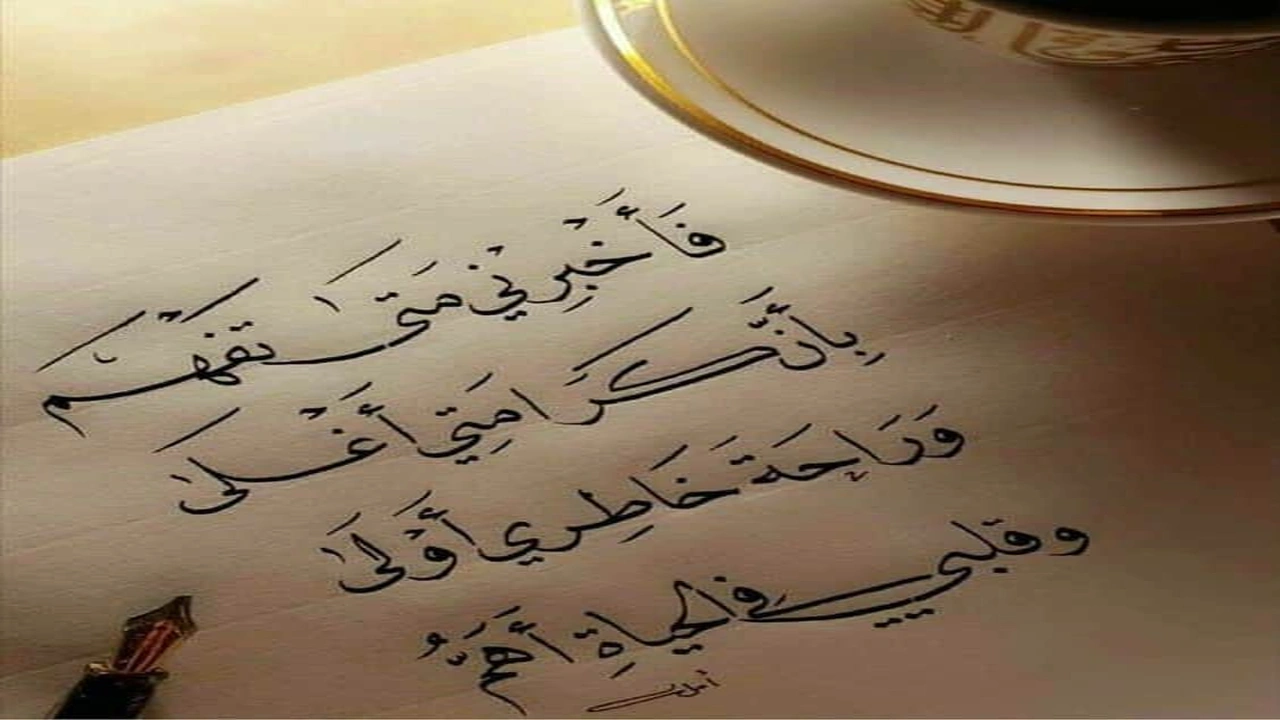 فَأَخْبِرْنِي مَتَىٰ تَفْهَمُ
بِأَنَّ كَرَامَتِي أَغْلَىٰ
وَرَاحَةَ خَاطِرِي أَوْلَىٰ
وقلبي في الحياةِ أَهَمُّ